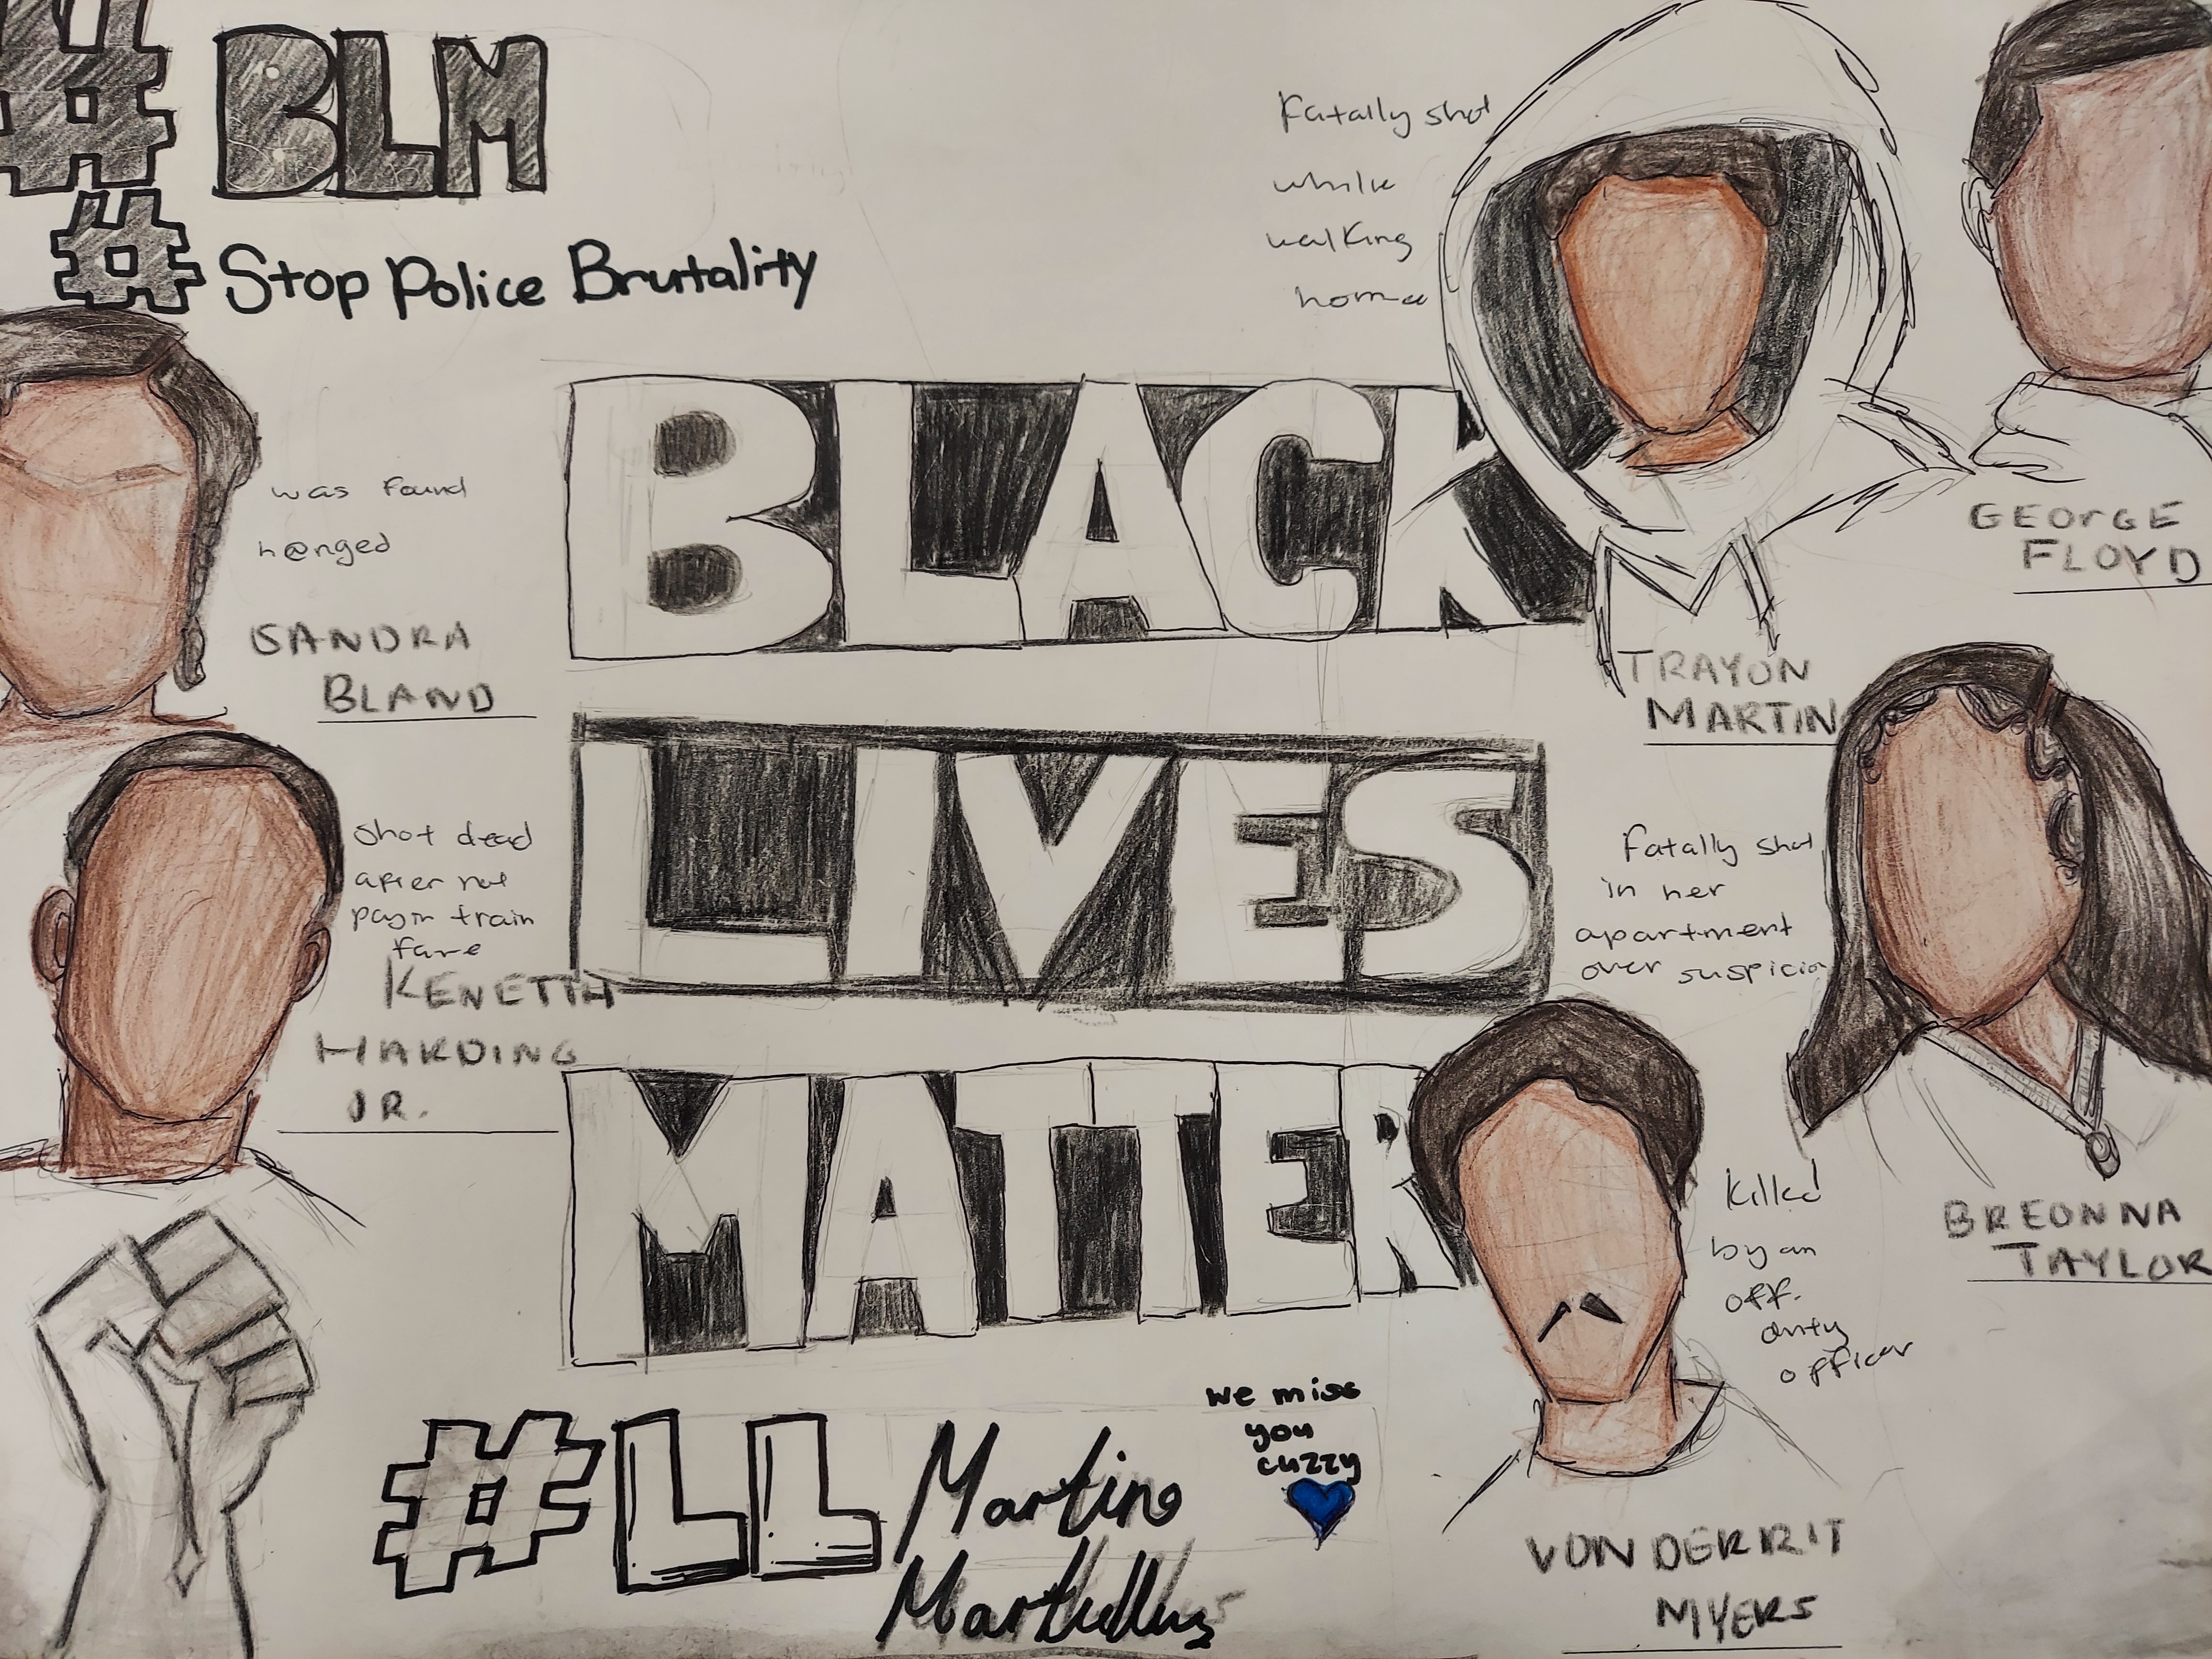 #BLM
#Stop Police Brutality
Fatally shot
while
walking
home
GEORGE
FLOYD
BLACK
was found
h@nged
SANDRA
BLAND
TRAYON
MARTIN
LIVES
shot dead
after not
payin train
fare
KENETTH
HARDING
JR.
Fatally shot
in her
apartment
over suspicion
BREONNA
TAYLOR
MATTER
Killed
by an
off-
duty
officer
VONDERRIT
MYERS
we miss
you
cuzzy
#LL Martino
Martellus